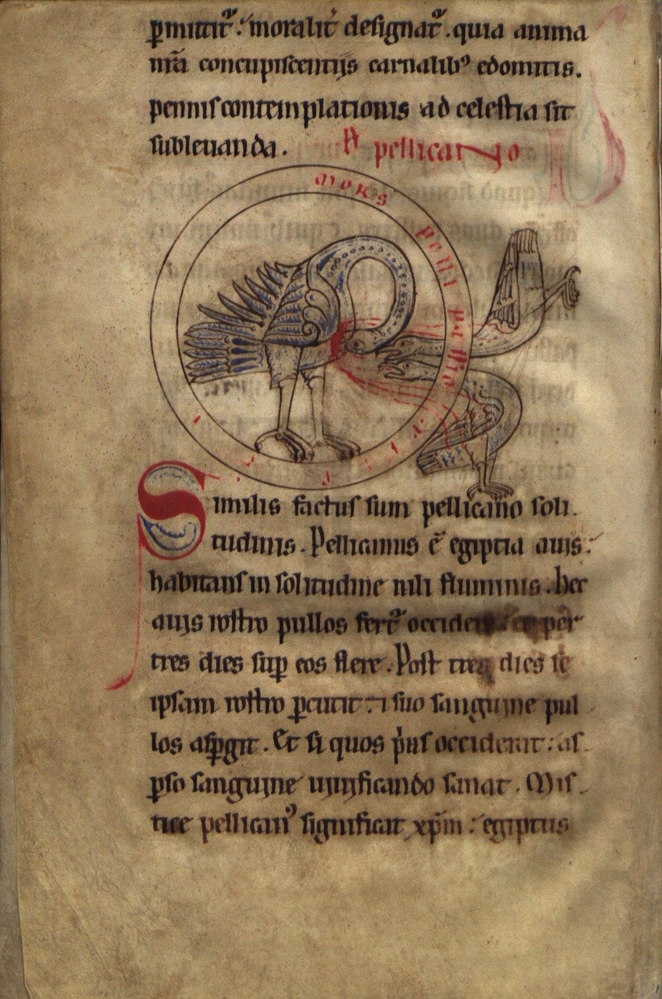 ꝑmittit᷑: moralit᷑ designat᷑. quia anima
nr̃a concupiscentijs carnalib⁹ edomitis.
pennis contemplationis ad celestia sit
subleuanda. pellicano
mors pelli passio
Similis factus sum pellicano soli
tudinis. Pellicanus ẽ egiptia auis:
habitans in solitudine nili fluminis. hec
auis rostro pullos fert᷑ occidere ꝑ
tres dies suꝑ eos flere. Post tres dies se
ipsam rostro ꝑcutit: ⁊ suo sanguine pul
los aspgit. Et si quos p̃us occiderat: as
ꝑso sanguine uiuificando sanat. Mis
tice pellican⁹ significat xp̃m: egiptus